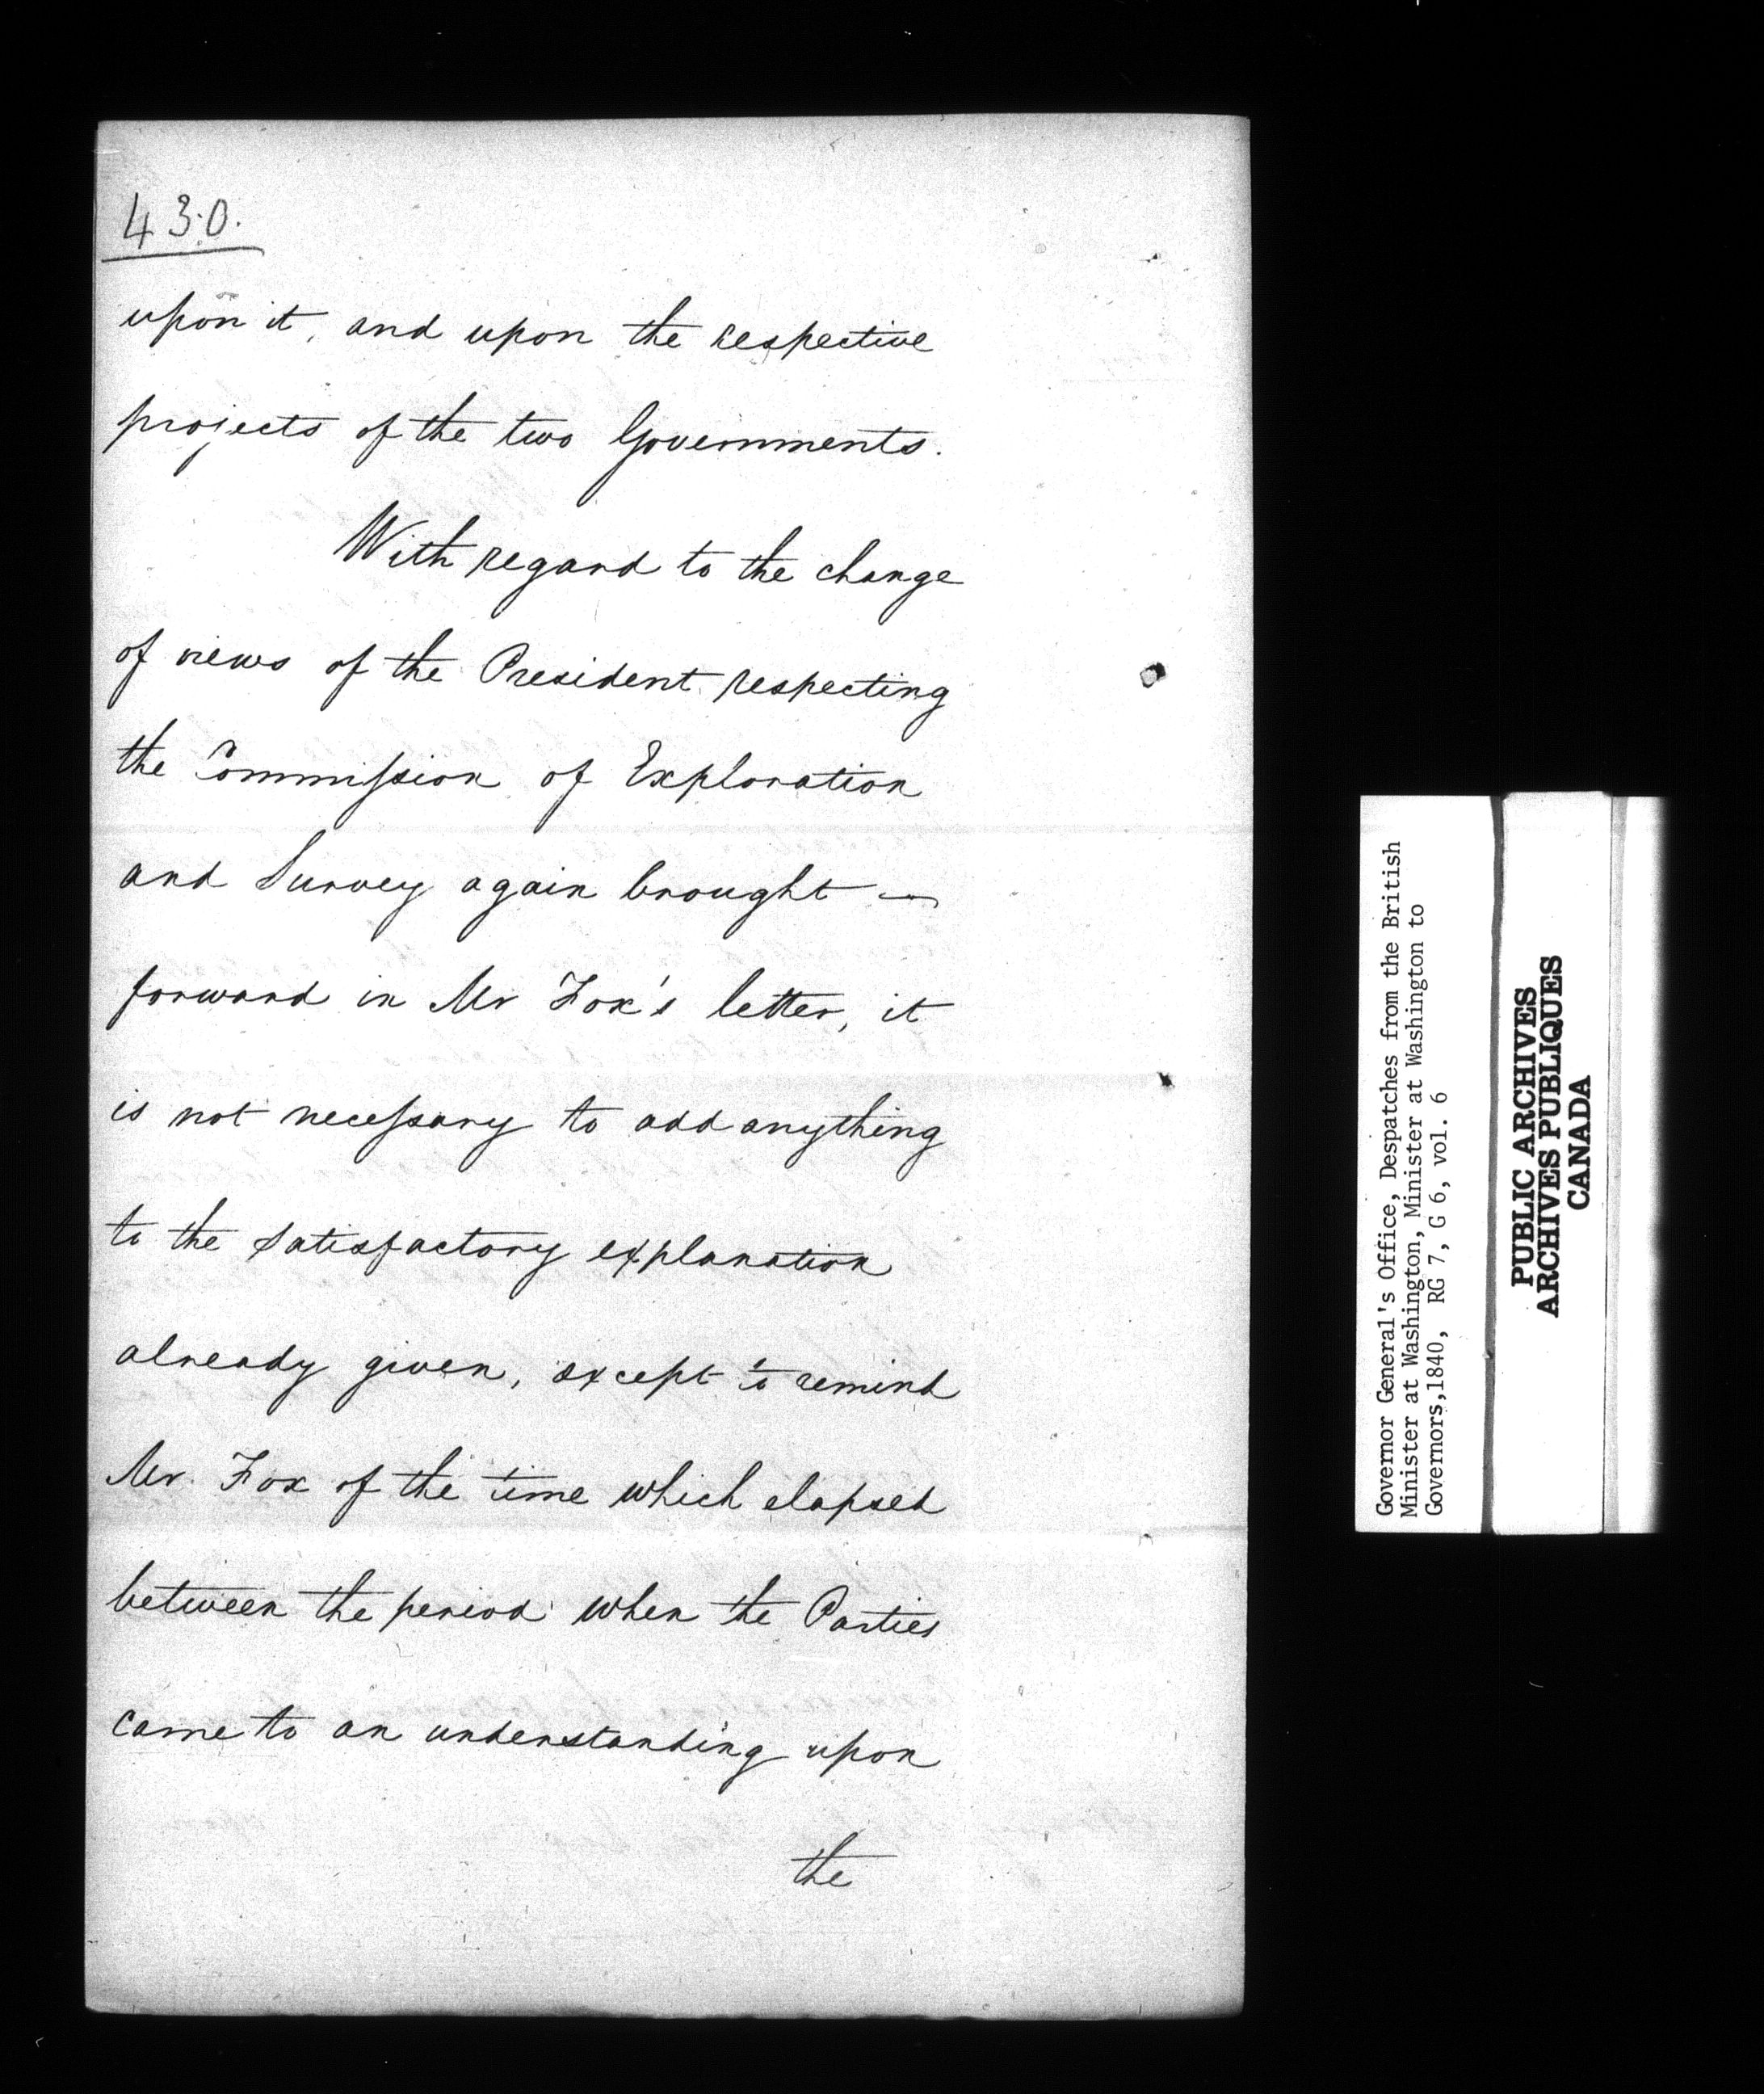 430.
upon it, and upon the respective
projects of the two Governments.
With regard to the change
of views of the President respecting
the Commission of Exploration
and Survey again brought —
forward in Mr Fox's letter, it
is not necessary to add anything
to the satisfactory explanation
already given, except to remind
Mr. Fox of the time which elapsed
between the period when the Parties
came to an understanding upon
the
Governor General's Office, Despatches from the British
Minister at Washington, Minister at Washington to
Governors,1840, RG 7, G 6, vol. 6
PUBLIC ARCHIVES
ARCHIVES PUBLIQUES
CANADA